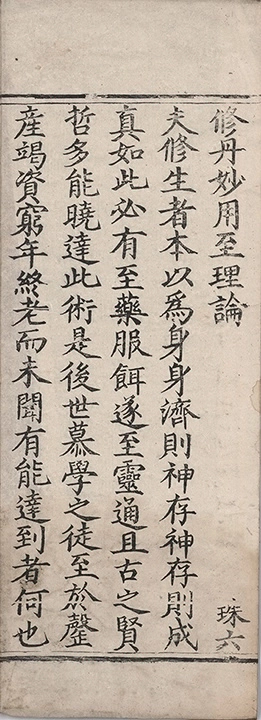 修丹妙用至理論 珠六
夫修生者本以為身身濟則神存神存則成
真如此必有至藥服餌遂至靈通且古之賢
哲多能曉達此術是後世慕學之徒至於罄
産竭資窮年終老而未聞有能達到者何也